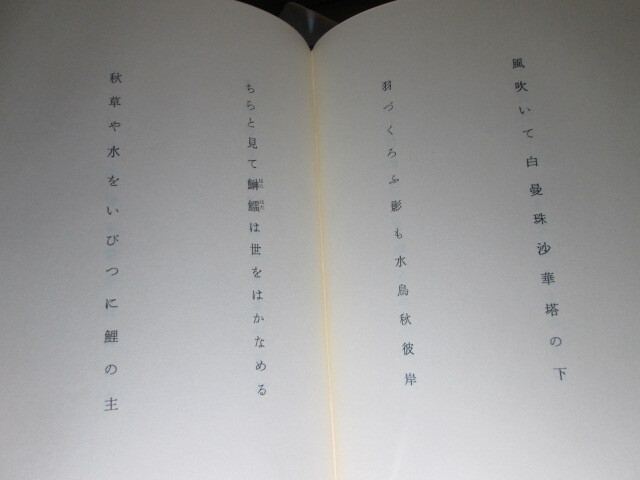 風吹いて白曼珠沙華塔の下
羽づくろふ影も水鳥秋彼岸
ちらと見ては世をはかなめる
秋草や水をいびつに鯉の主